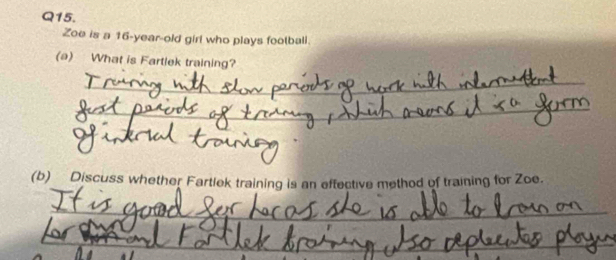 Q15.
Zoe is a 16-year-old girl who plays football.
(a) What is Fartlek training?
Training with slow periods of work with intermettent
fast periods of training, which means it is a form
of interval training.
(b) Discuss whether Fartlek training is an effective method of training for Zoe.
It is good for her as she is able to train on
her and Fartlek training also replicates playing